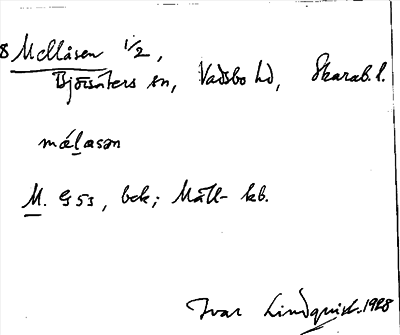 8 Mellåsen 1/2,
Björsäters sn, Vadsbo hd, Skarab. l.
mælasən
M. G 53, bek; Mäll- kb.
Ivar Lindquist. 1928